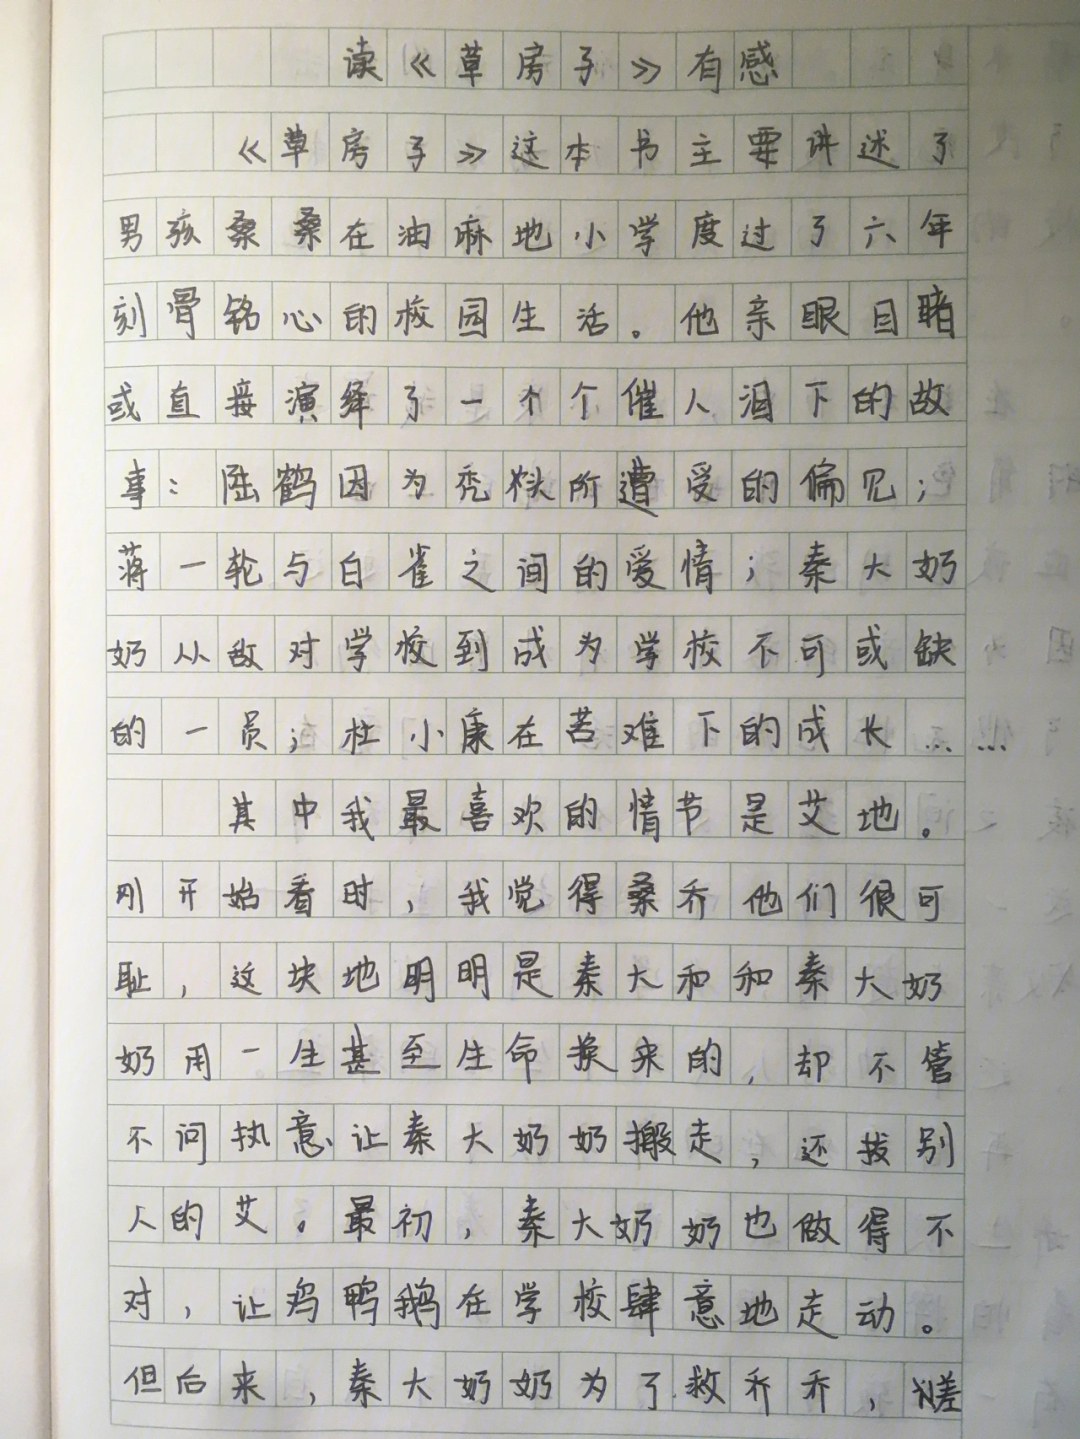 读《草房子》有感
《草房子》这本书主要讲述了
男孩桑桑在油麻地小学度过了六年
刻骨铭心的校园生活。他亲眼目睹
或直接演绎了一个个催人泪下的故
事：陆鹤因为秃头所遭受的偏见；
蒋一轮与白雀之间的爱情；秦大奶
奶从敌对学校到成为学校不可或缺
的一员；杜小康在苦难下的成长……
其中我最喜欢的情节是艾地。
刚开始看时，我觉得桑乔他们很可
耻，这块地明明是秦大和和秦大奶
奶用一生甚至生命换来的，却不管
不问执意让秦大奶奶搬走，还拔别
人的艾。最初，秦大奶奶也做得不
对，让鸡鸭鹅在学校肆意地走动。
但后来，秦大奶奶为了救乔乔，差